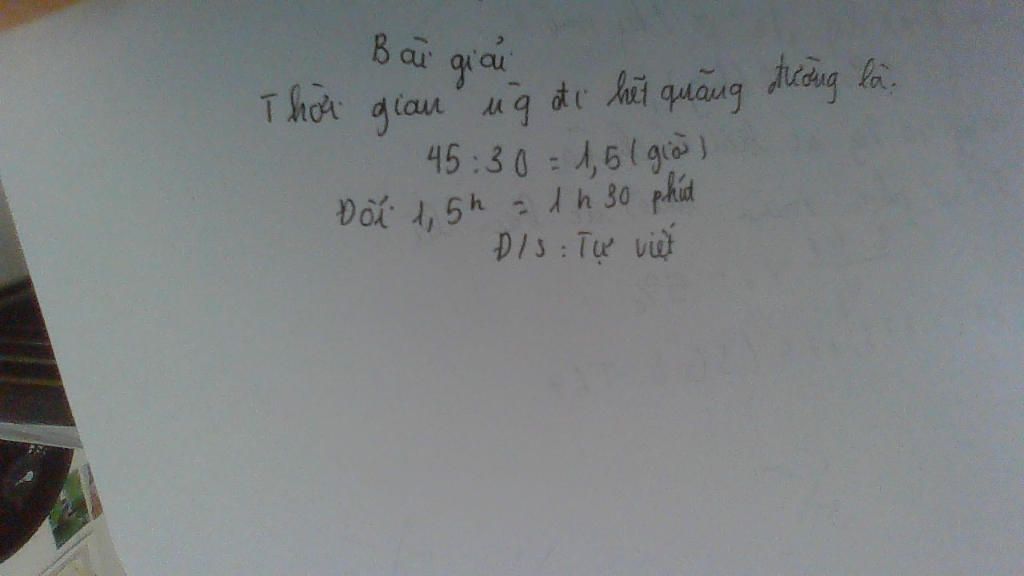 Bài giải
Thời gian ng đi hết quãng đường là:
45 : 30 = 1,5 (giờ)
Đổi 1,5h = 1h 30 phút
Đ/s : Tự viết